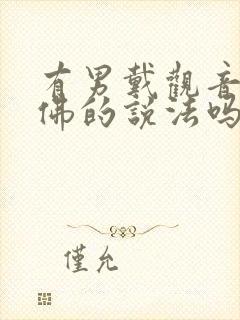 有男戴觀音
佛的説法吗
僅允